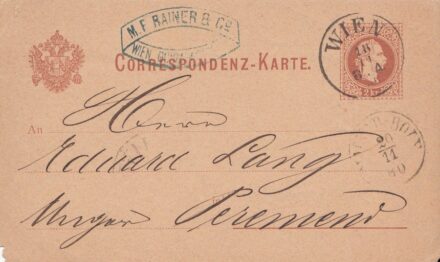 M. F. RAINER & Co
WIEN
CORRESPONDENZ-KARTE.
WIEN
An
Herrn
Eduard Lang
Ungar Peremend
20
11
80